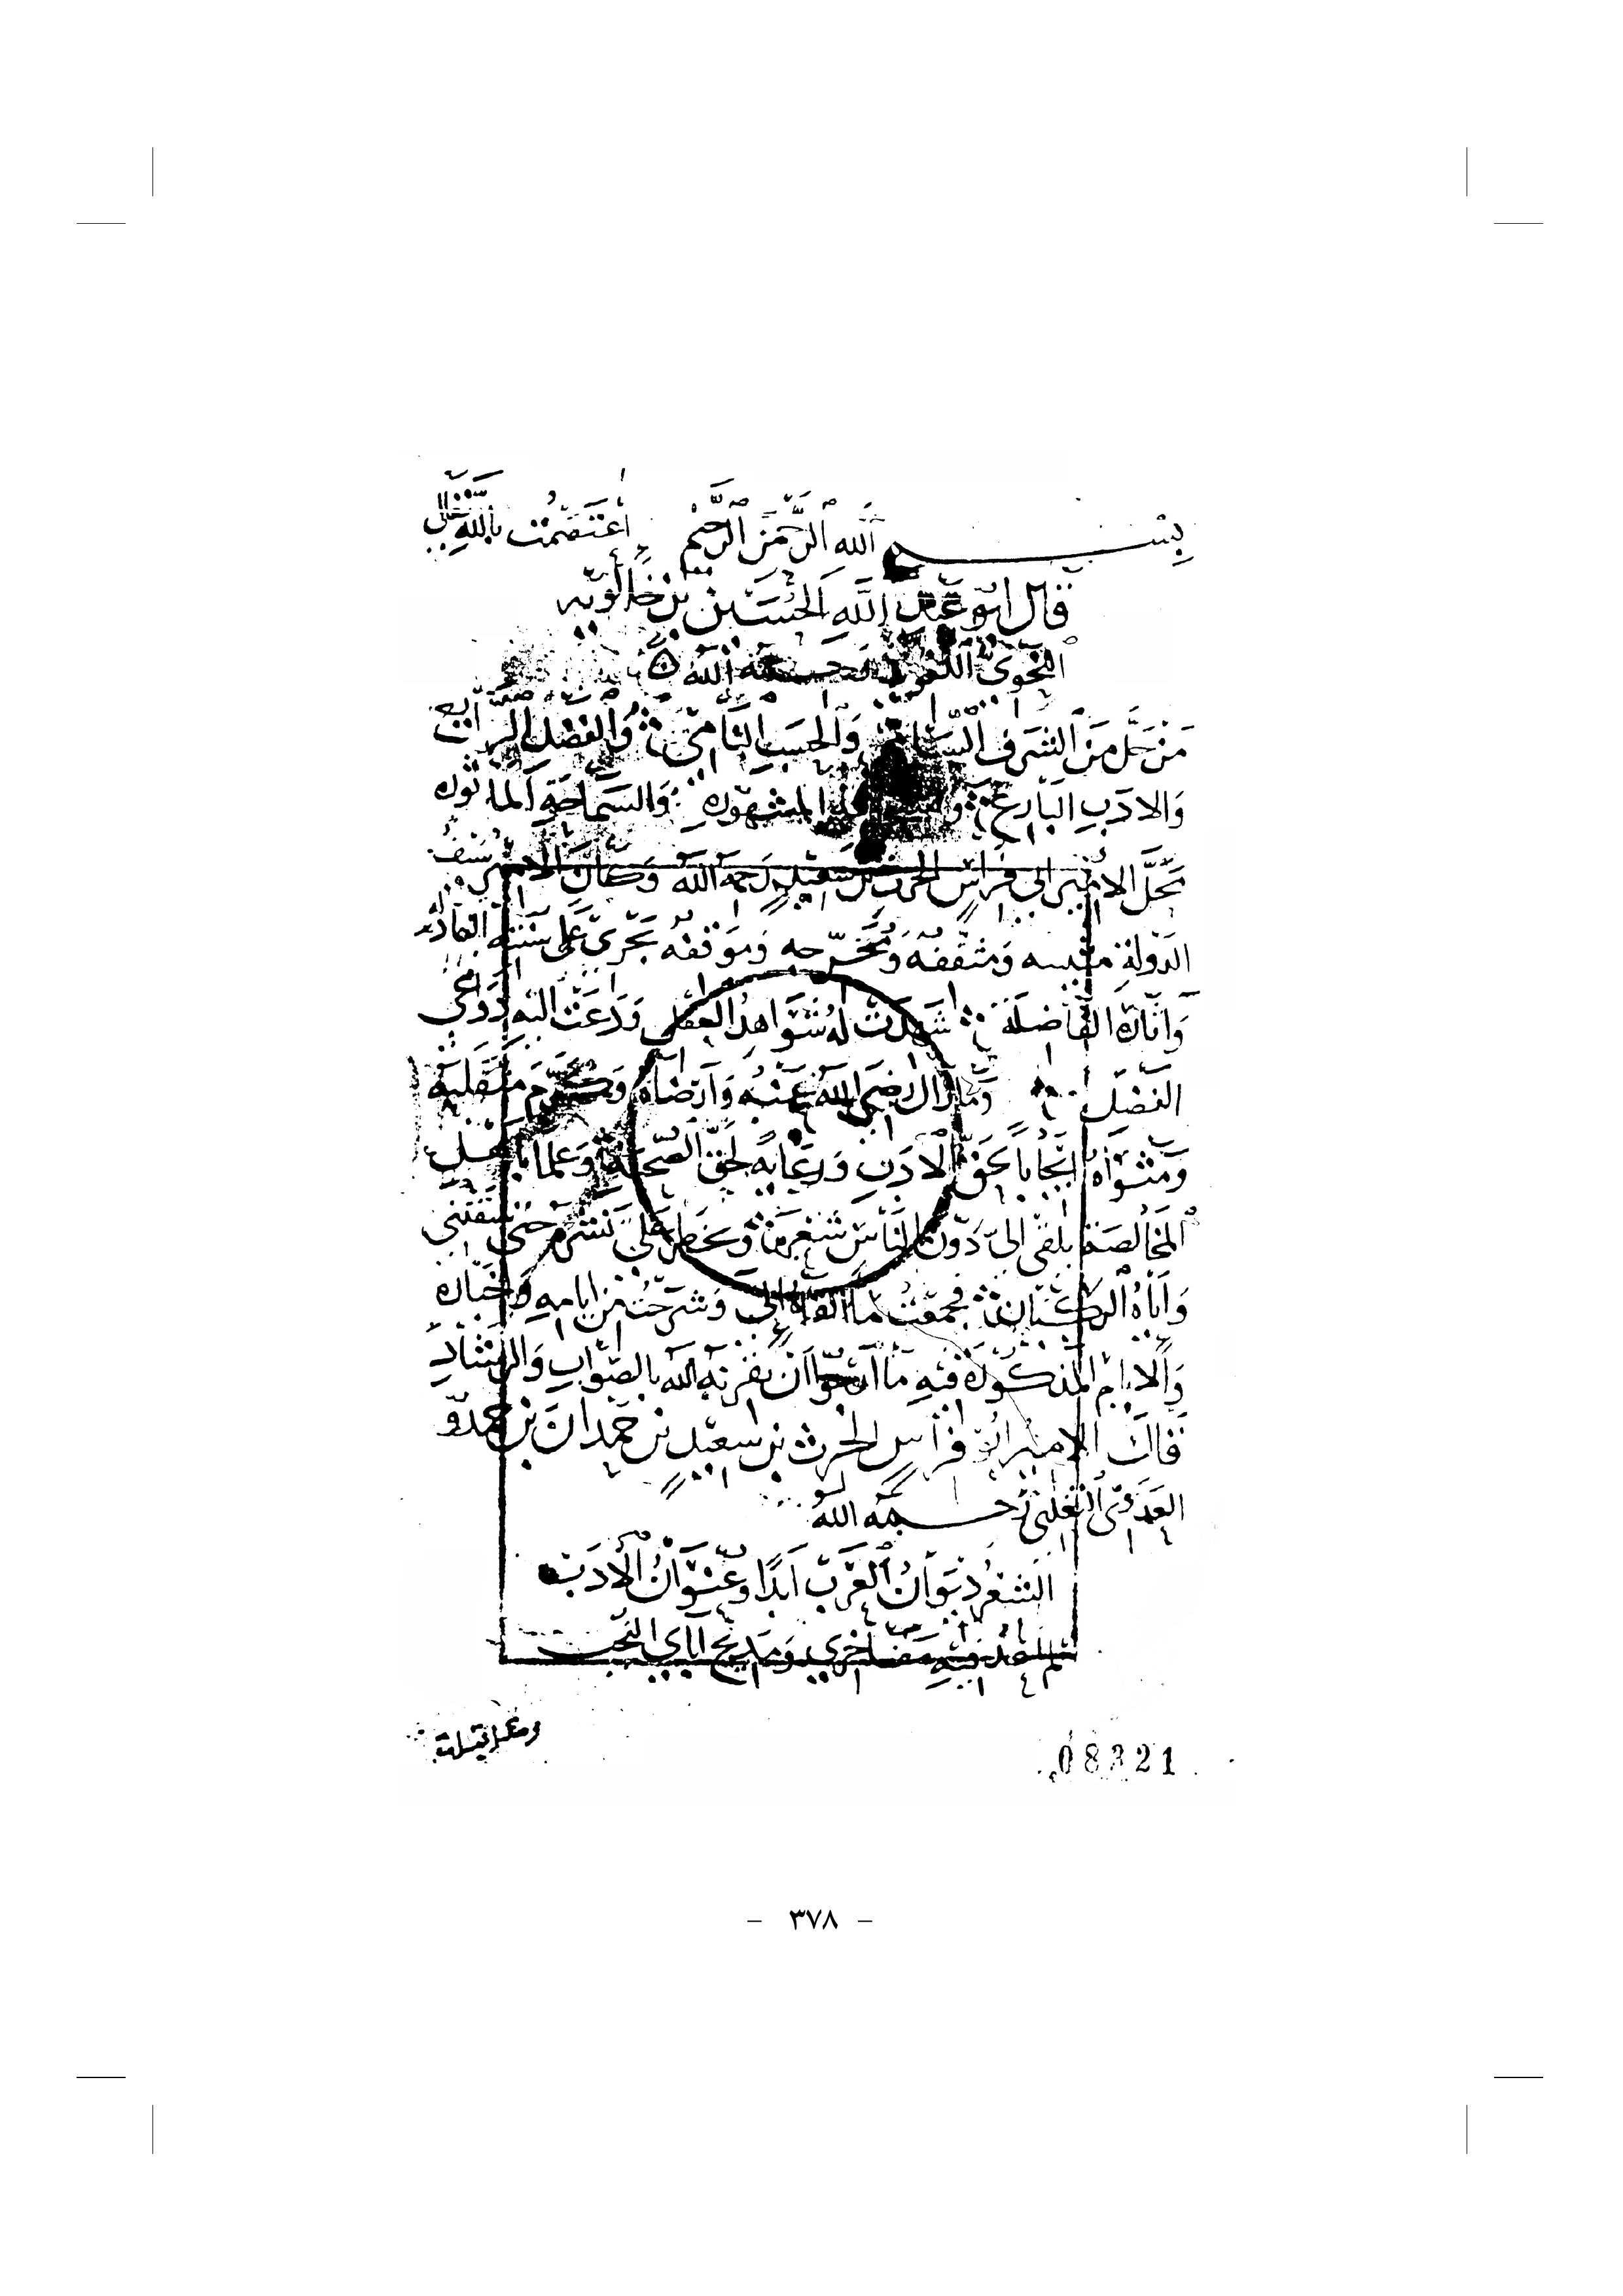 بسم الله الرحمن الرحيم اعتصمت بالله
قال ابو عبد الله الحسين بن خالويه
النحوي اللغوي رحمه الله
من حل من الشرف السامي والحسب النامي والفضل الرائع
والادب البارع المشهوره والسماحة الماثوره
محل الامير ابي فراس الحرث بن سعيد رحمه الله وكان الامير سيف
الدولة ومثقفه ومخرجه وموقفه يجري على سننه العادله
واثاره الفاضلة شهدت له شواهد العقل ودعت اليه دواعي
الفضل وما زال رضي الله عنه وارضاه وكرم منقلبه
ومثواه ايجابا لحق الادب ورعاية لحق الصحبة وعلما باهل
المخالصة يلقي الي دون الناس شعره ويحظر علي نشره حتى سبقتني
واياه الركبان فجمعت ما القاه الي وشرحت من ايامه واخباره
والايام المذكورة فيه ما ارجو ان يقرنه الله بالصواب والرشاد
قال الامير ابو فراس الحرث بن سعيد بن حمدان بن حمدو
العدوي التغلبي رحمه الله
الشعر ديوان العرب ابدا وعنوان الادب
لم اعد فيه مفاخري ومديح اباي النجب
ومقطعات
08321
– ٣٧٨ –